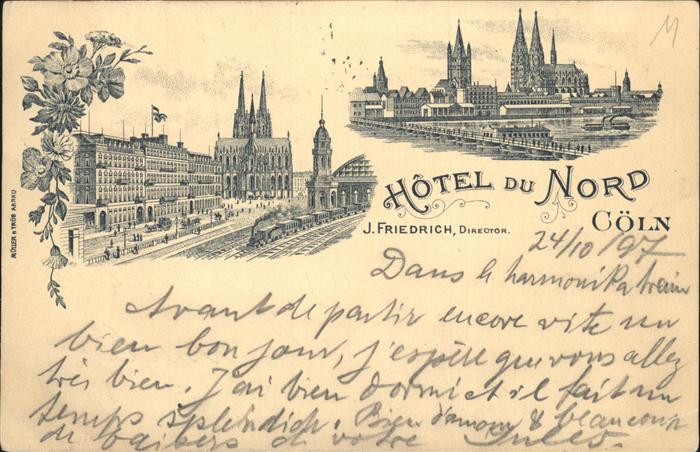 HÔTEL DU NORD
J. FRIEDRICH, DIRECTOR.
CÖLN
MÜLLER & TRÜB AARAU
24/10/97
Dans le harmonika train
Avant de partir encore vite un
bien bonjour, j'espère que vous allez
très bien. J'ai bien dormi et il fait un
temps splendide. Bien d'amour & beaucoup
de baisers de votre Jules.